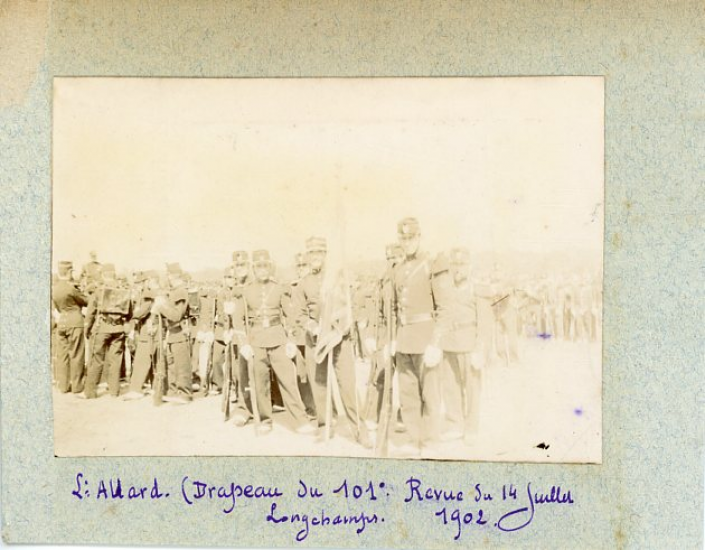 Lt Allard. (Drapeau du 101e. Revue du 14 Juillet
Longchamps. 1902.